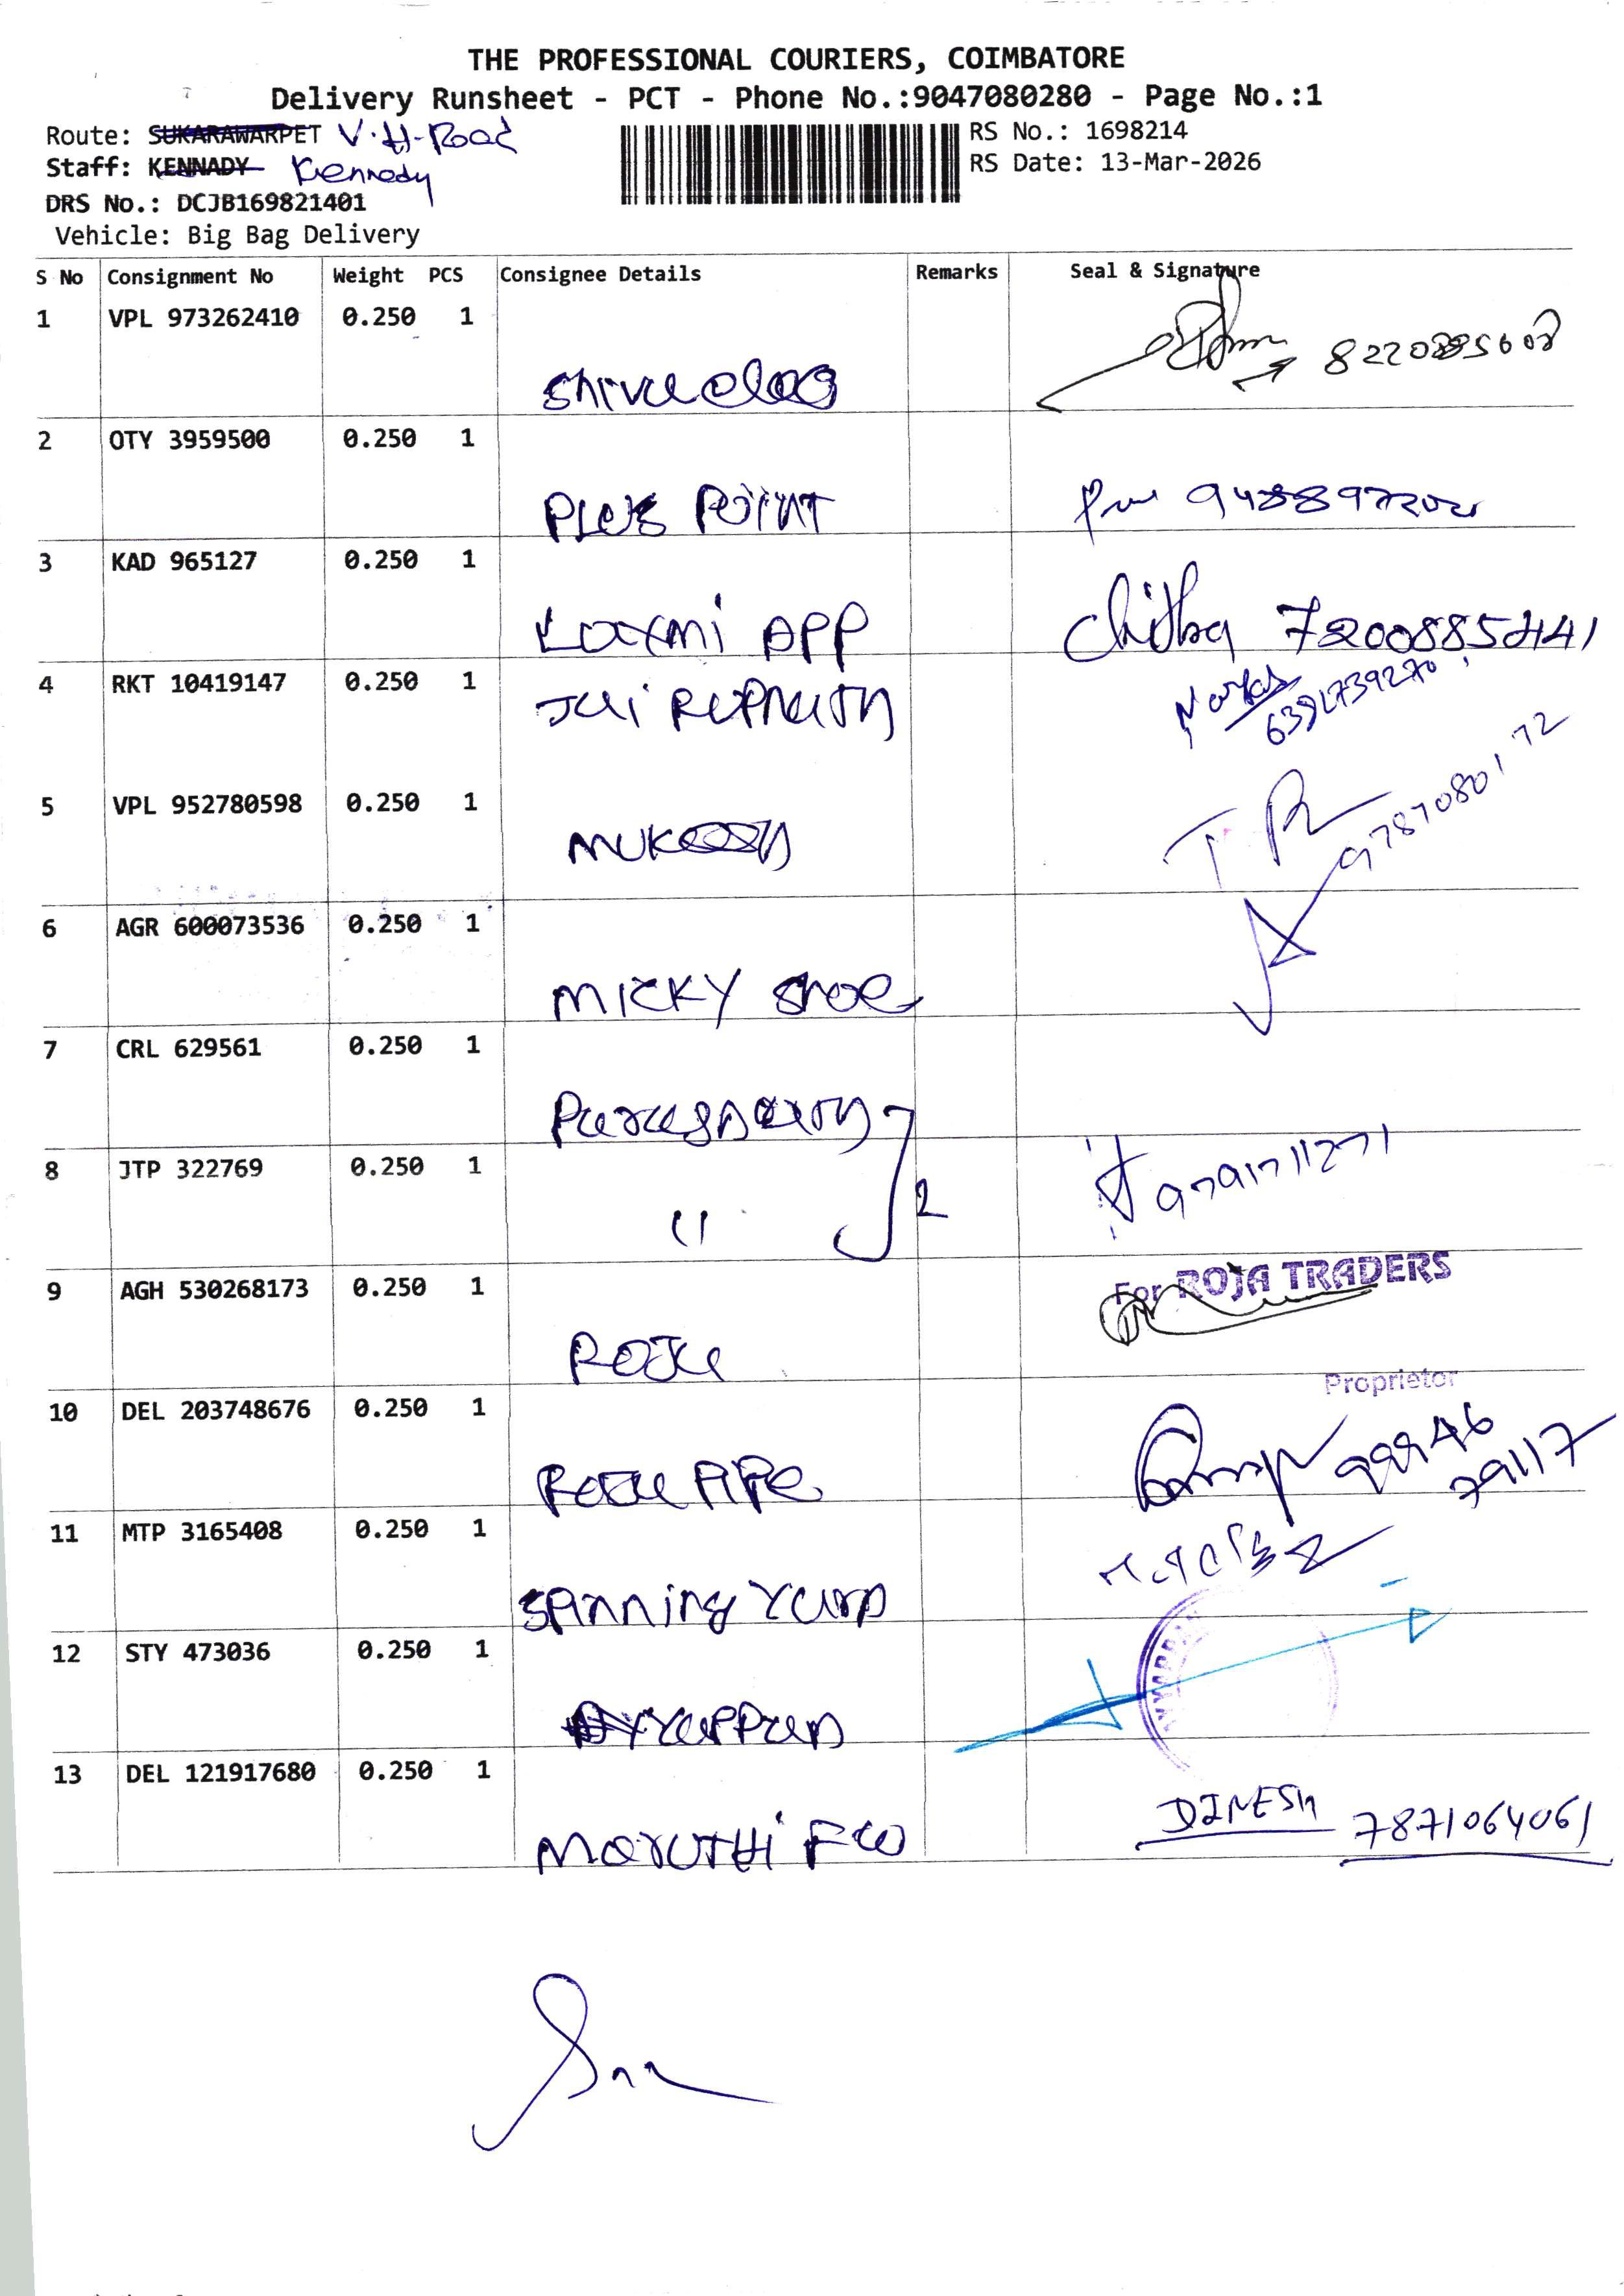 THE PROFESSIONAL COURIERS, COIMBATORE
Delivery Runsheet - PCT - Phone No.:9047080280 - Page No.:1
Route: SUKARAWARPET V.H-Road
Staff: KENNADY Kennedy
DRS No.: DCJB169821401
Vehicle: Big Bag Delivery
RS No.: 1698214
RS Date: 13-Mar-2026
S No Consignment No Weight PCS Consignee Details Remarks Seal & Signature
1 VPL 973262410 0.250 1
2 OTY 3959500 0.250 1
PLUS POINT
3 KAD 965127 0.250 1
Laxmi APP Chitha
4 RKT 10419147 0.250 1
Jai
5 VPL 952780598 0.250 1
9787080172
6 AGR 600073536 0.250 1
MICKY Shoe
7 CRL 629561 0.250 1
8 JTP 322769 0.250 1
11 2
9791711271
9 AGH 530268173 0.250 1
For ROJA TRADERS
Roja
Proprietor
10 DEL 203748676 0.250 1
99946
79117
Roja
11 MTP 3165408 0.250 1
Spinning Yarn
12 STY 473036 0.250 1
Ayyappan
13 DEL 121917680 0.250 1
Maruthi DINESH 7871064061